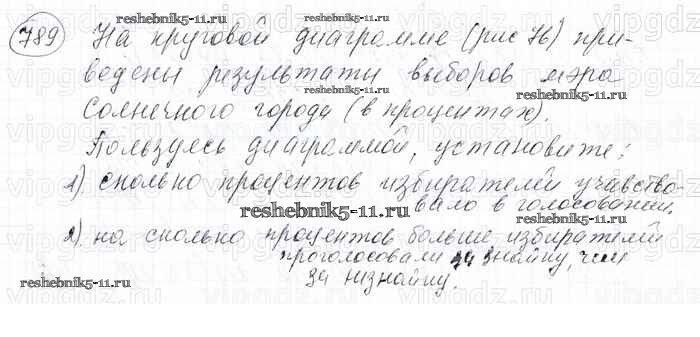 789 На круговой диаграмме (рис 76) при-
ведены результаты выборов мэра
Солнечного города (в процентах).
Пользуясь диаграммой, установите:
1) сколько процентов избирателей учавство-
вало в голосовании,
2) на сколько процентов больше избирателей
проголосовали за Знайку, чем
за незнайку.
reshebnik5-11.ru
reshebnik5-11.ru
reshebnik5-11.ru
reshebnik5-11.ru
reshebnik5-11.ru
reshebnik5-11.ru
reshebnik5-11.ru
vipgdz.ru